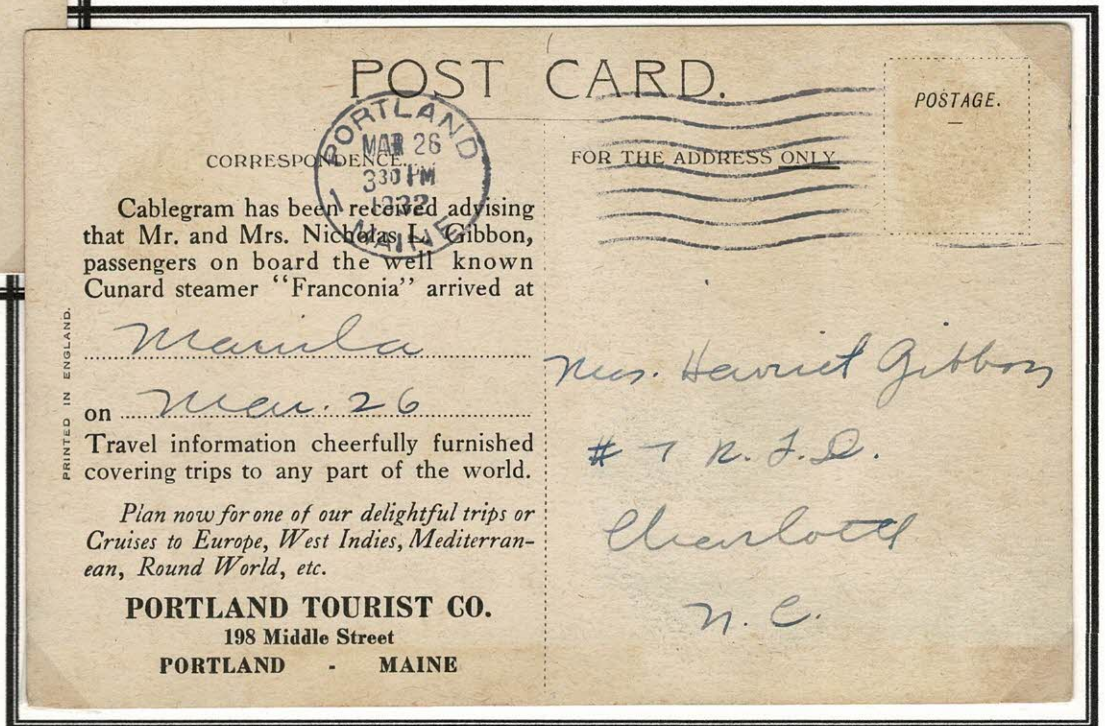 POST CARD.
POSTAGE.
PORTLAND
MAR 26
330 PM
1932
MAINE
CORRESPONDENCE.
FOR THE ADDRESS ONLY
Cablegram has been received advising
that Mr. and Mrs. Nicholas L. Gibbon,
passengers on board the well known
Cunard steamer “Franconia” arrived at
Manila
on Mar. 26
Travel information cheerfully furnished
covering trips to any part of the world.
Plan now for one of our delightful trips or
Cruises to Europe, West Indies, Mediterran-
ean, Round World, etc.
PORTLAND TOURIST CO.
198 Middle Street
PORTLAND - MAINE
PRINTED IN ENGLAND.
Mrs. Harriet Gibbon
# 7 R.F.D.
Charlotte
N.C.